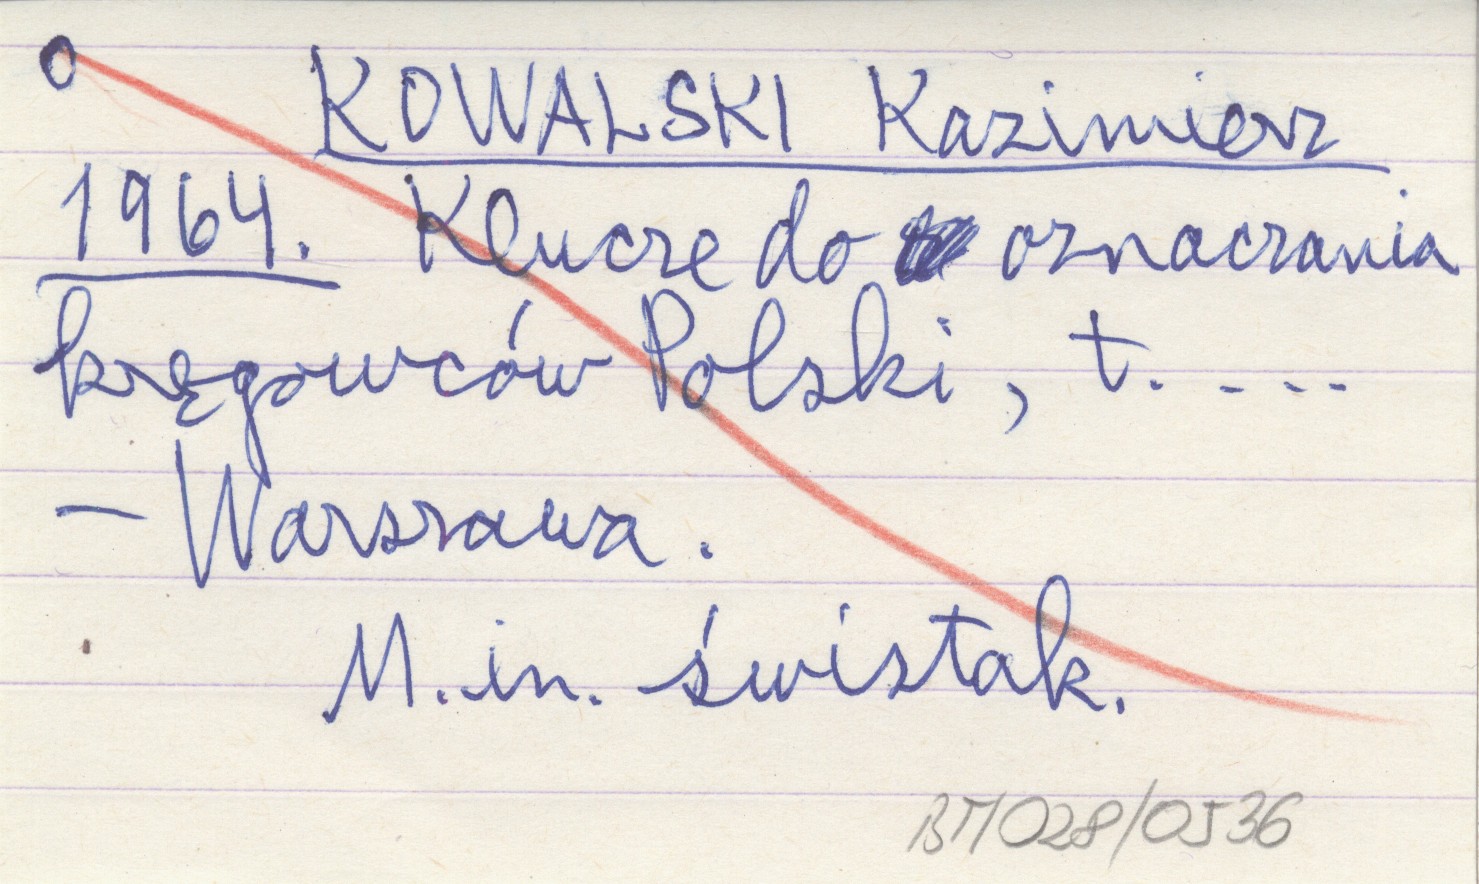 O KOWALSKI Kazimierz
1964. Klucze do oznaczania
kręgowców Polski, t. ....
– Warszawa.
M. in. świstak.
BM/028/0536